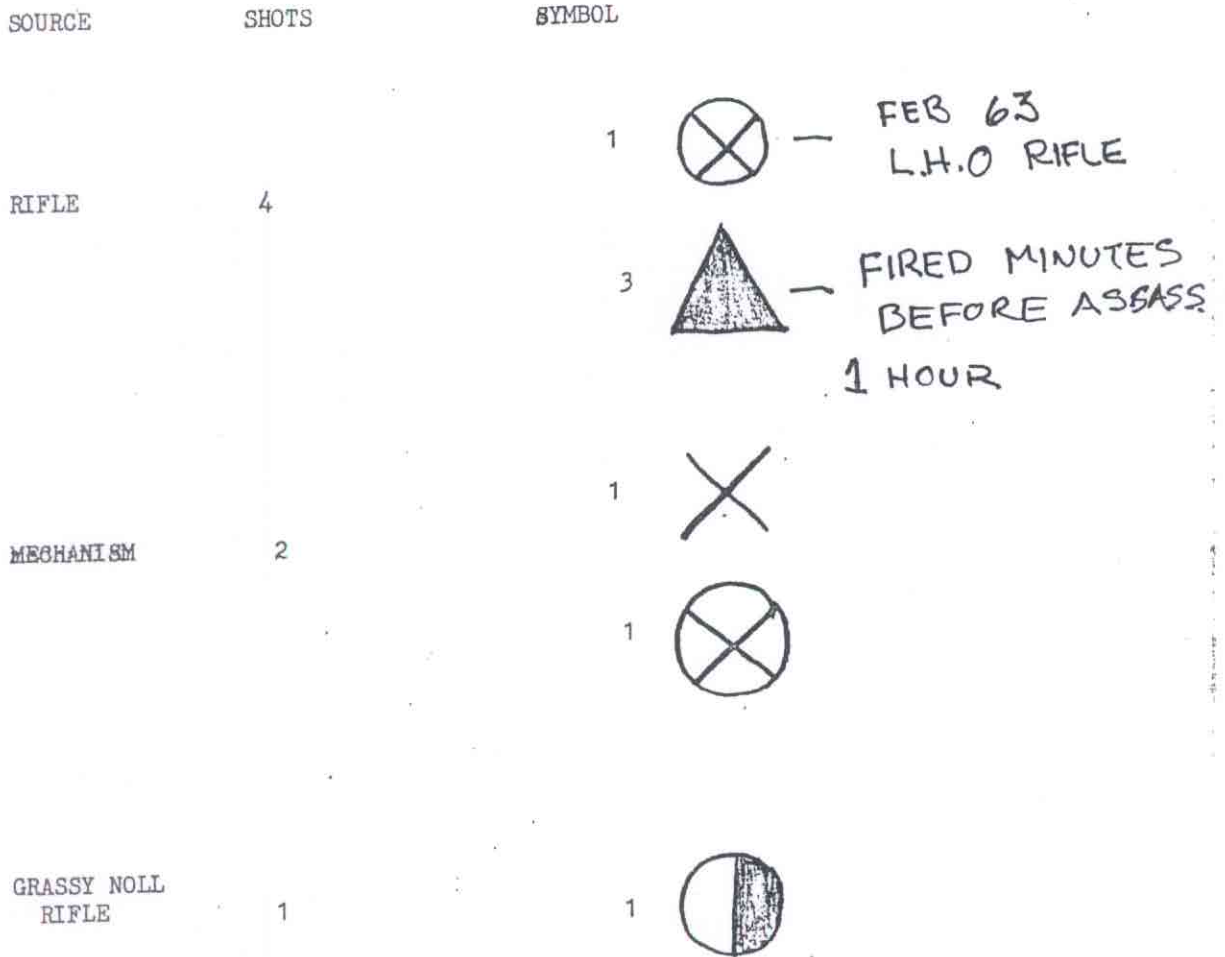 SOURCE SHOTS SYMBOL
1 — FEB 63
L.H.O RIFLE
RIFLE 4
3 — FIRED MINUTES
BEFORE ASSASS.
1 HOUR
1
MECHANISM 2
1
GRASSY NOLL
RIFLE 1 1